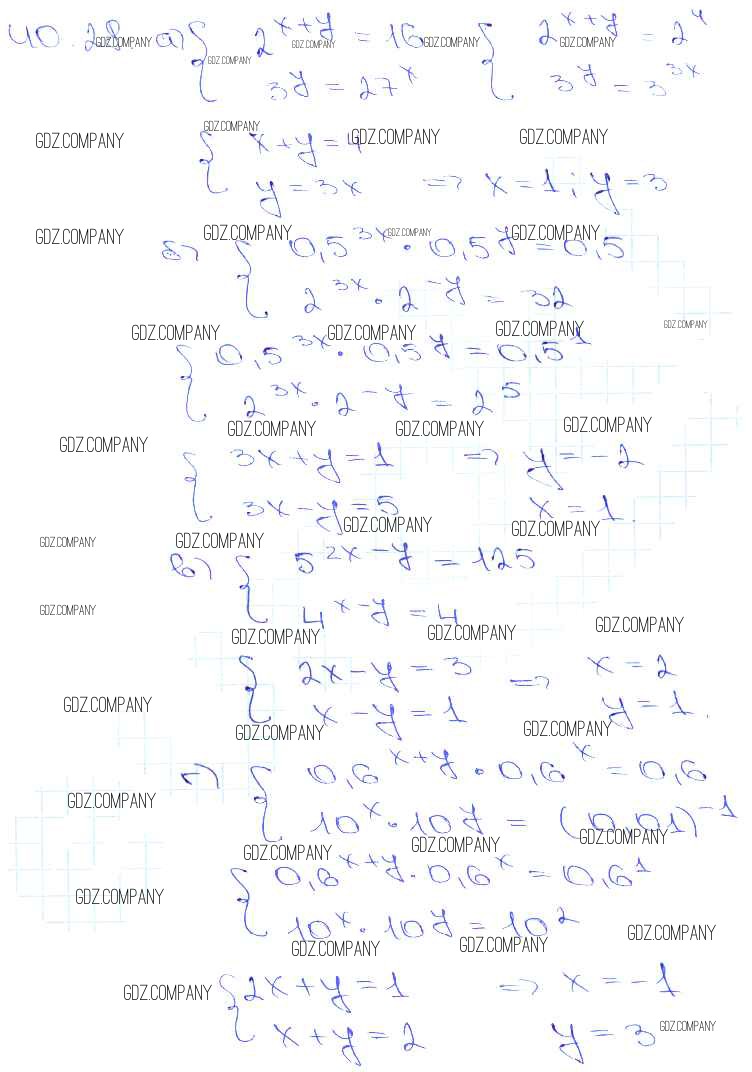 40.28 а) { 2^{x+y} = 16 { 2^{x+y} = 2^4
3^y = 27^x 3^y = 3^{3x}
{ x+y=4
y=3x => x=1; y=3
б) { 0,5^{3x} · 0,5^y = 0,5
2^{3x} · 2^{-y} = 32
{ 0,5^{3x} · 0,5^y = 0,5^1
2^{3x} · 2^{-y} = 2^5
{ 3x+y=1 => y=-2
3x-y=5 x=1.
в) { 5^{2x-y} = 125
4^{x-y} = 4
{ 2x-y=3 => x=2
x-y=1 y=1.
г) { 0,6^{x+y} · 0,6^x = 0,6
10^x · 10^y = (0,01)^{-1}
{ 0,6^{x+y} · 0,6^x = 0,6^1
10^x · 10^y = 10^2
{ 2x+y=1 => x=-1
x+y=2 y=3
GDZ.COMPANY